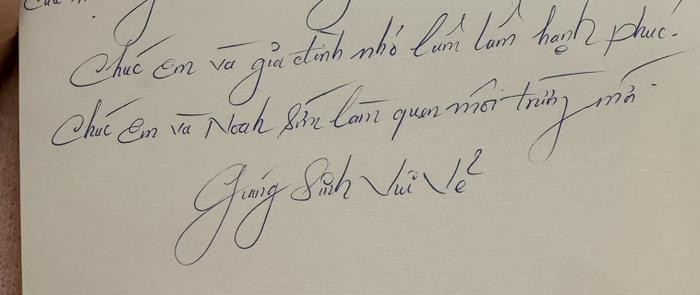 Chúc Em và gia đình nhỏ luôn luôn hạnh phúc.
Chúc Em và Noah sớm làm quen môi trường mới
Giáng Sinh Vui Vẻ